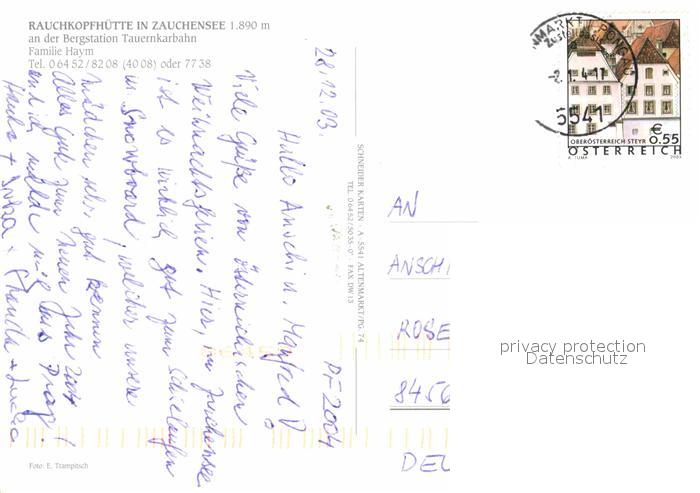 RAUCHKOPFHÜTTE IN ZAUCHENSEE 1.890 m
an der Bergstation Tauernkarbahn
Familie Haym
Tel. 0 64 52 / 82 08 (40 08) oder 77 38
28.12.03. PF 2004
Hallo Anschi u. Manfred
Viele Grüße von österreichischen
Weihnachtsferien. Hier, in Zauchensee
ist es wirklich gut zum Schielaufen
u. Snowboard, welcher unsere
Mädchen sehr gut
Alles Gute zum Neuen Jahr 2004
und ich melde mich aus Prag!
SCHNEIDER KARTEN · A - 5541 ALTENMARKT/PG. 74
TEL. 0 64 52 / 50 35-0 FAX DW 13
AN
ANSCHI
ROSE
8456
DEU
ALTENMARKT PONGAU
2.1.4-17
5541
€ 0.55
OBERÖSTERREICH STEYR
ÖSTERREICH
A. TUMA 2003
privacy protection
Datenschutz
Foto: E. Trampitsch